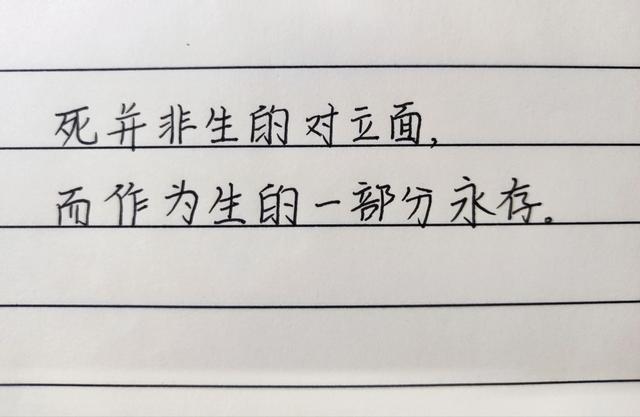 死并非生的对立面,
而作为生的一部分永存。